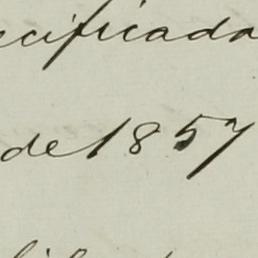 ecificada
de 1857